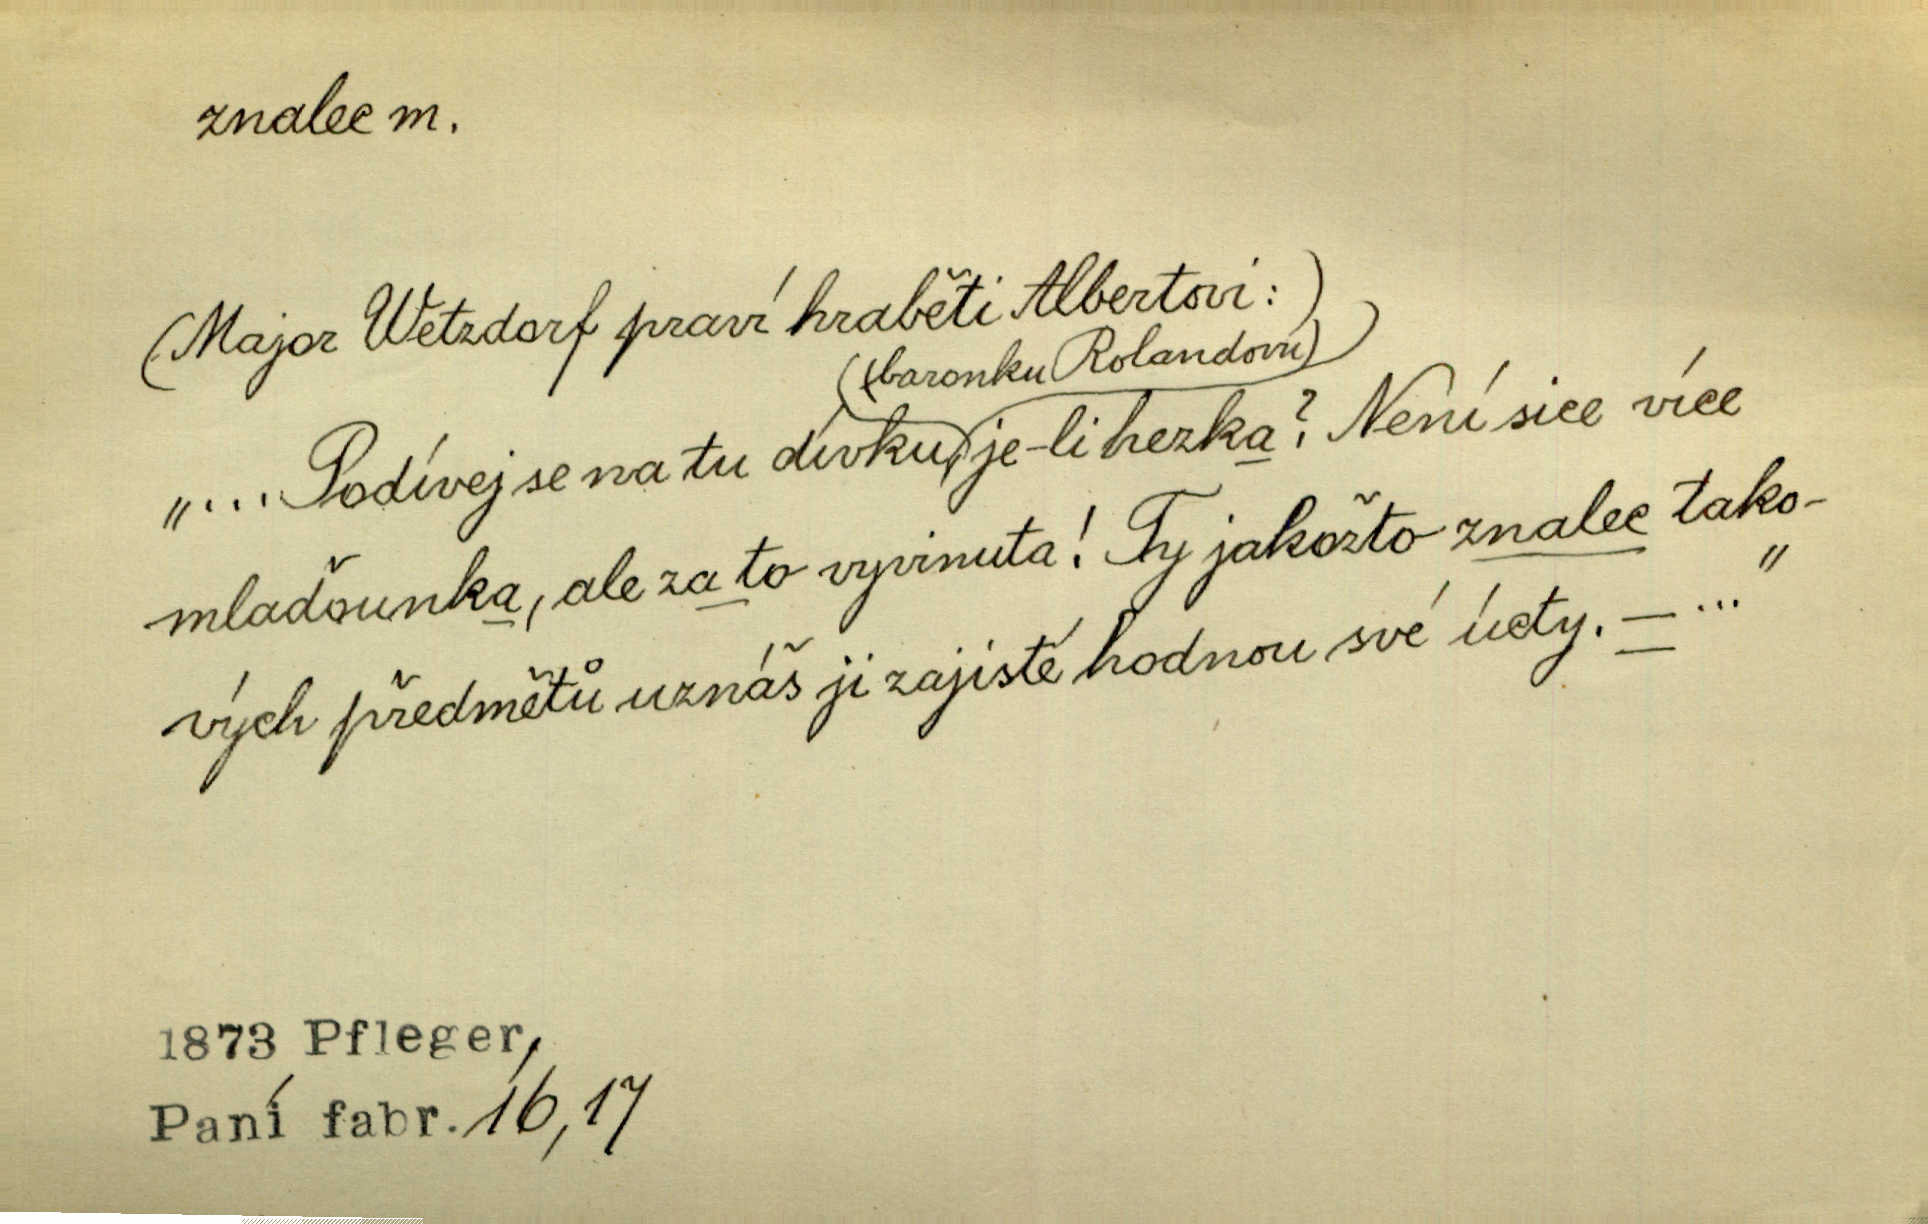 znalec m.
(Major Wetzdorf praví hraběti Albertovi:)
(baronku Rolandovu)
„... Podívej se na tu dívku, je-li hezka? Není sice více
mlaďounka, ale za to vyvinuta! Ty jakožto znalec tako-
vých předmětů uznáš ji zajisté hodnou své úcty. — ..."
1873 Pfleger,
Paní fabr. 16, 17